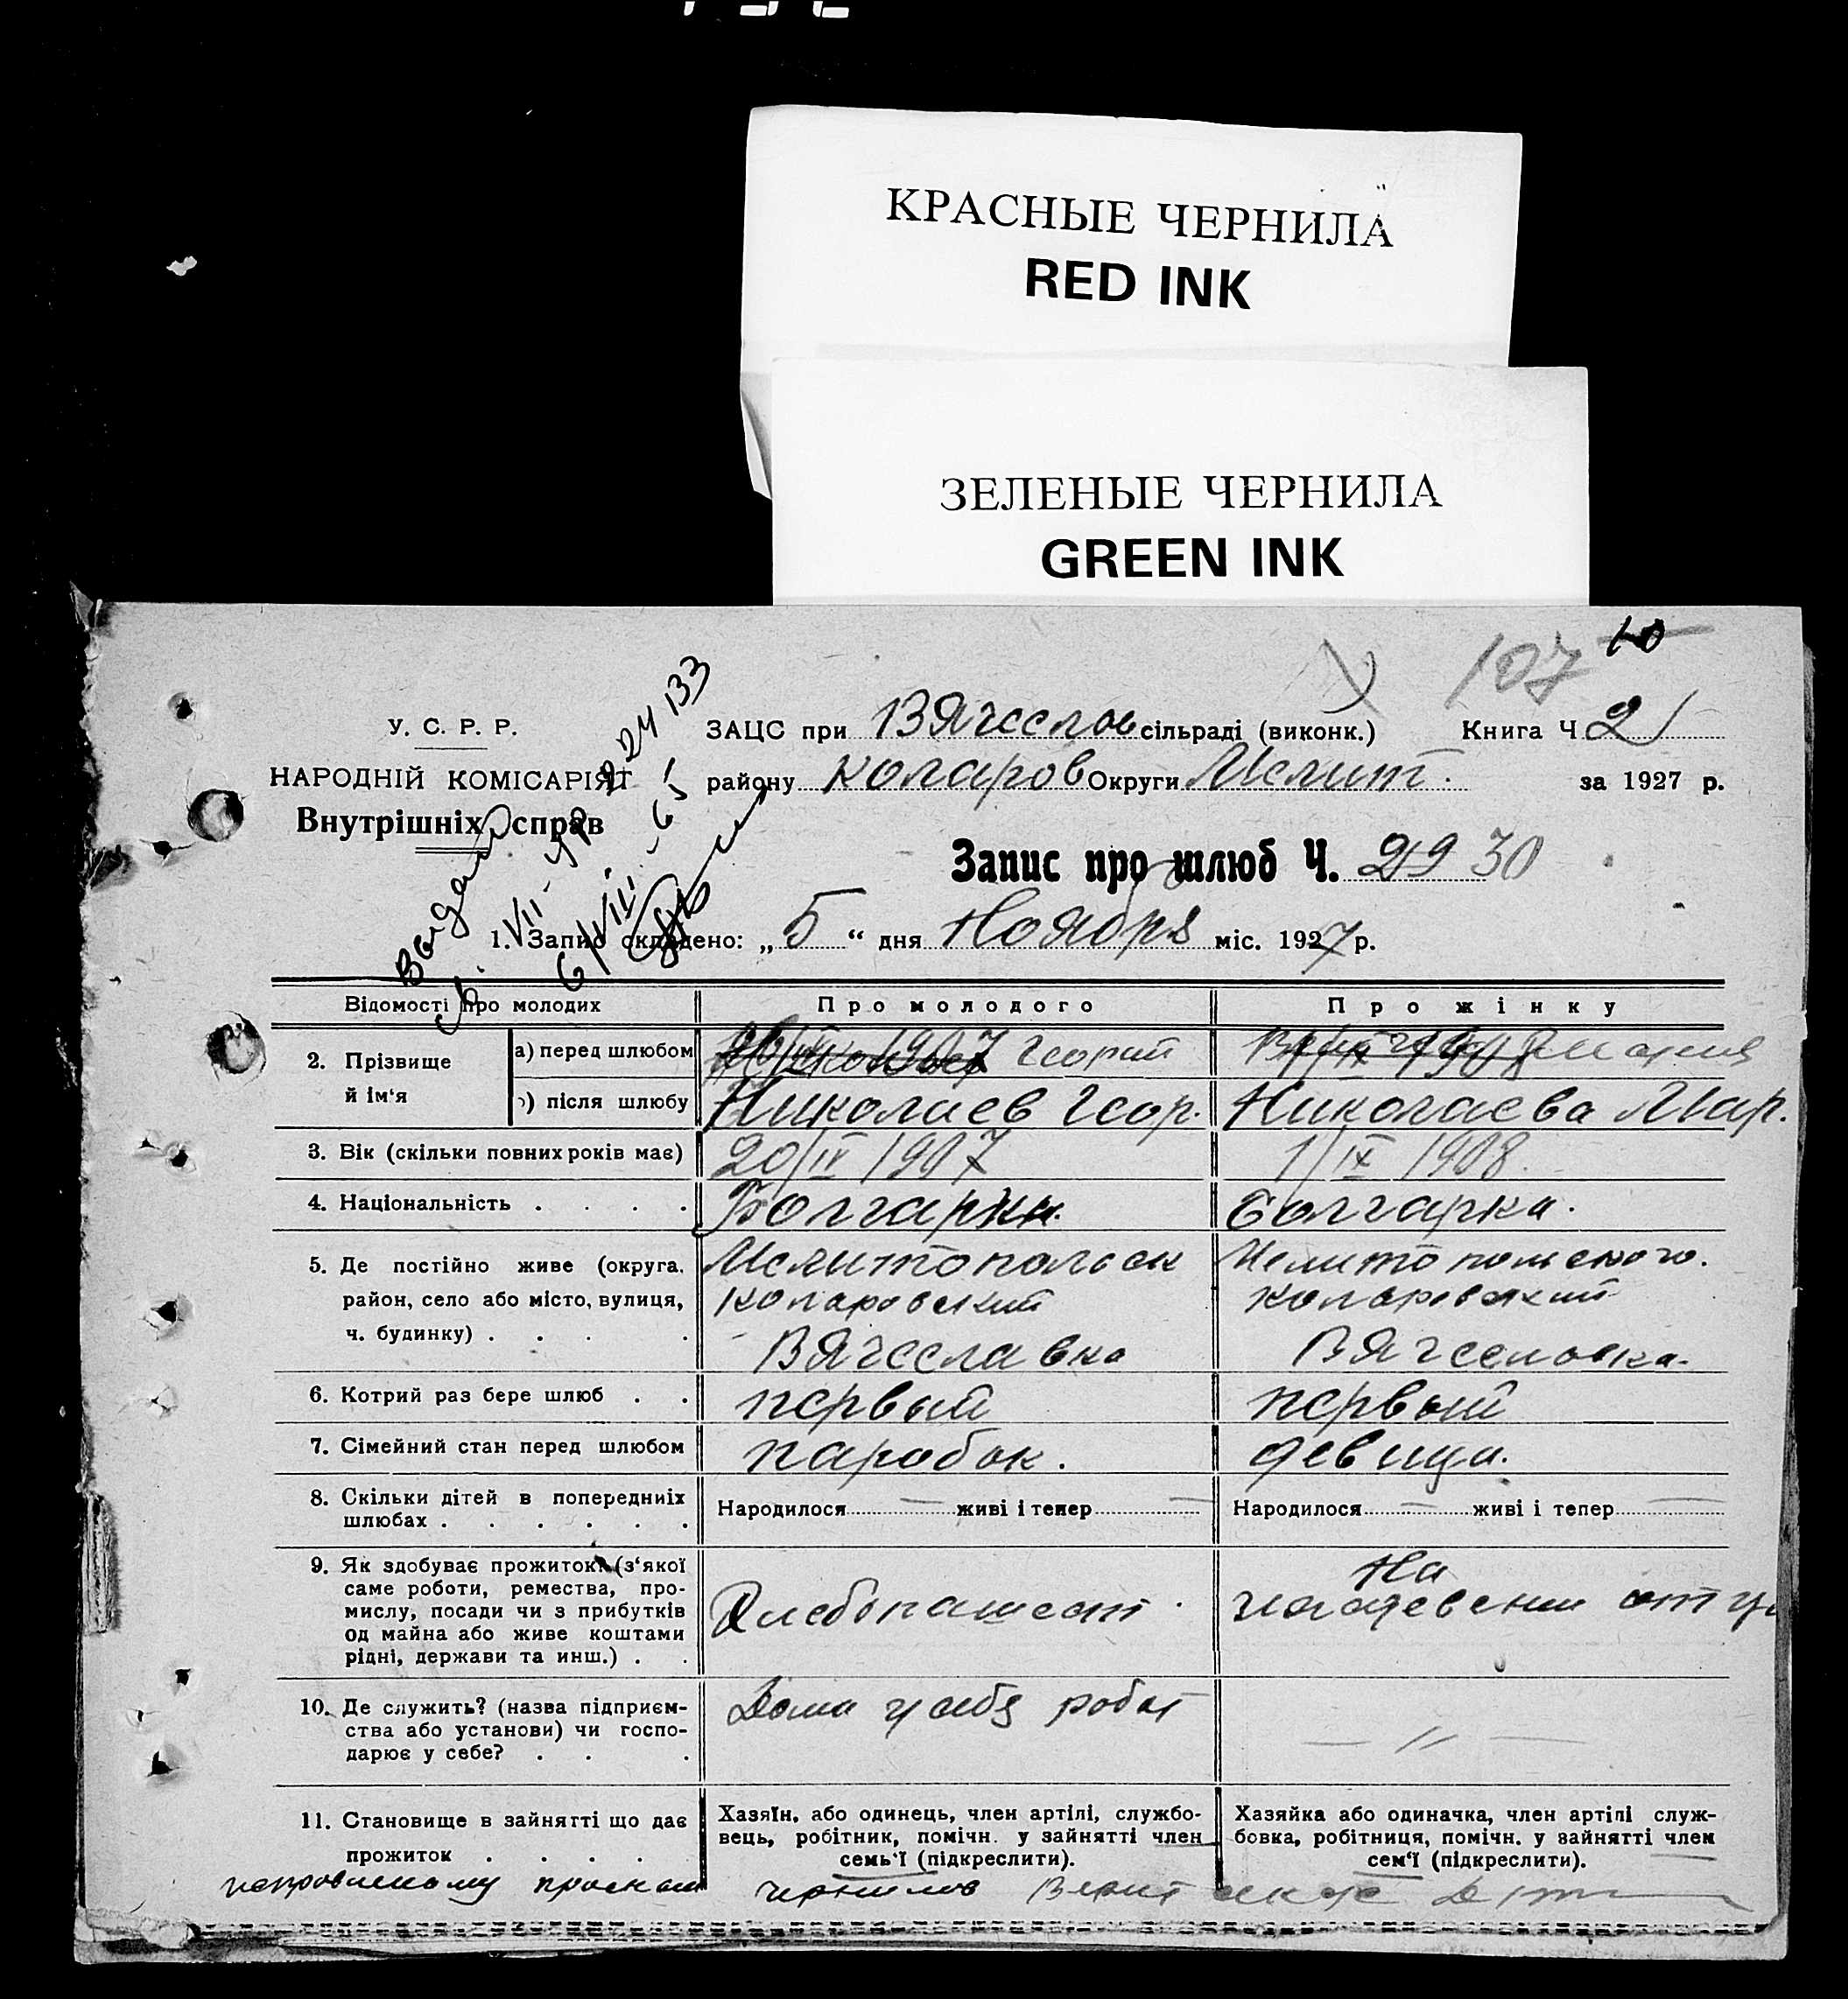 КРАСНЫЕ ЧЕРНИЛА
RED INK
ЗЕЛЕНЫЕ ЧЕРНИЛА
GREEN INK
107 10
У. С. Р. Р.
НАРОДНІЙ КОМІСАРІЯТ
Внутрішніх справ
ЗАЦС при Вячеслов сільраді (виконк.) Книга Ч 2
району Коларов Округи Мелит. за 1927 р.
Запис про шлюб Ч. 29 30
1. Запис складено: „5“ дня Ноября міс. 1927 р.
Відомості про молодих Про молодого Про жінку
2. Прізвище й ім'я
а) перед шлюбом Георгий Мария
б) після шлюбу Николаев Геор. Николаева Мар.
3. Вік (скільки повних років має) 20/IV 1907 1/IX 1908.
4. Національність . . . . Болгарин. болгарка.
5. Де постійно живе (округа, район, село або місто, вулиця, ч. будинку) . . . .
Мелитопольск
Коларовский
Вячеславка
Мелитопольского.
Коларовский
Вячеславка.
6. Котрий раз бере шлюб . . первый первый
7. Сімейний стан перед шлюбом паробок. девица.
8. Скільки дітей в попередніх шлюбах . . . . . . Народилося — живі і тепер — Народилося — живі і тепер —
9. Як здобуває прожиток? (з'якої
саме роботи, ремества, про-
мислу, посади чи з прибутків
од майна або живе коштами
рідні, держави та инш.) . .
Хлебопашест.
На
иждевении отца
10. Де служить? (назва підприєм-
ства або установи) чи госпо-
дарює у себе? . . .
Дома у себя робот
— 〃 —
11. Становище в зайнятті що дає
прожиток . . . .
Хазяїн, або одинець, член артілі, службо-
вець, робітник, помічн. у зайнятті член
семь'ї (підкреслити).
Хазяйка або одиначка, член артілі служ-
бовка, робітниця, помічн. у зайнятті член
сем'ї (підкреслити).
чернилов